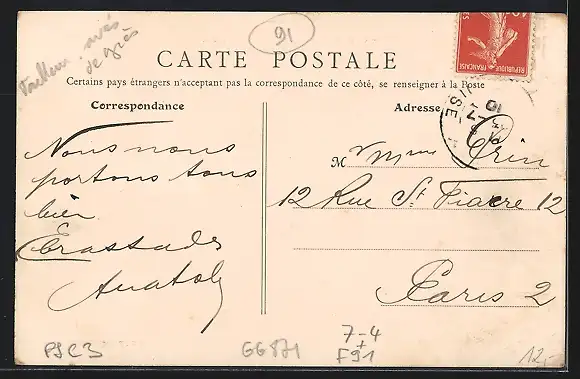 91
Tailleur pavés
de grès
CARTE POSTALE
Certains pays étrangers n'acceptant pas la correspondance de ce côté, se renseigner à la Poste
Correspondance
Nous nous
portons tous
bien
Embrassades
Anatole
Adresse
M Vve Mme Crin
12 Rue St Fiacre 12
Paris 2
REPUBLIQUE FRANÇAISE
GG 871
7-4
F91
12,-